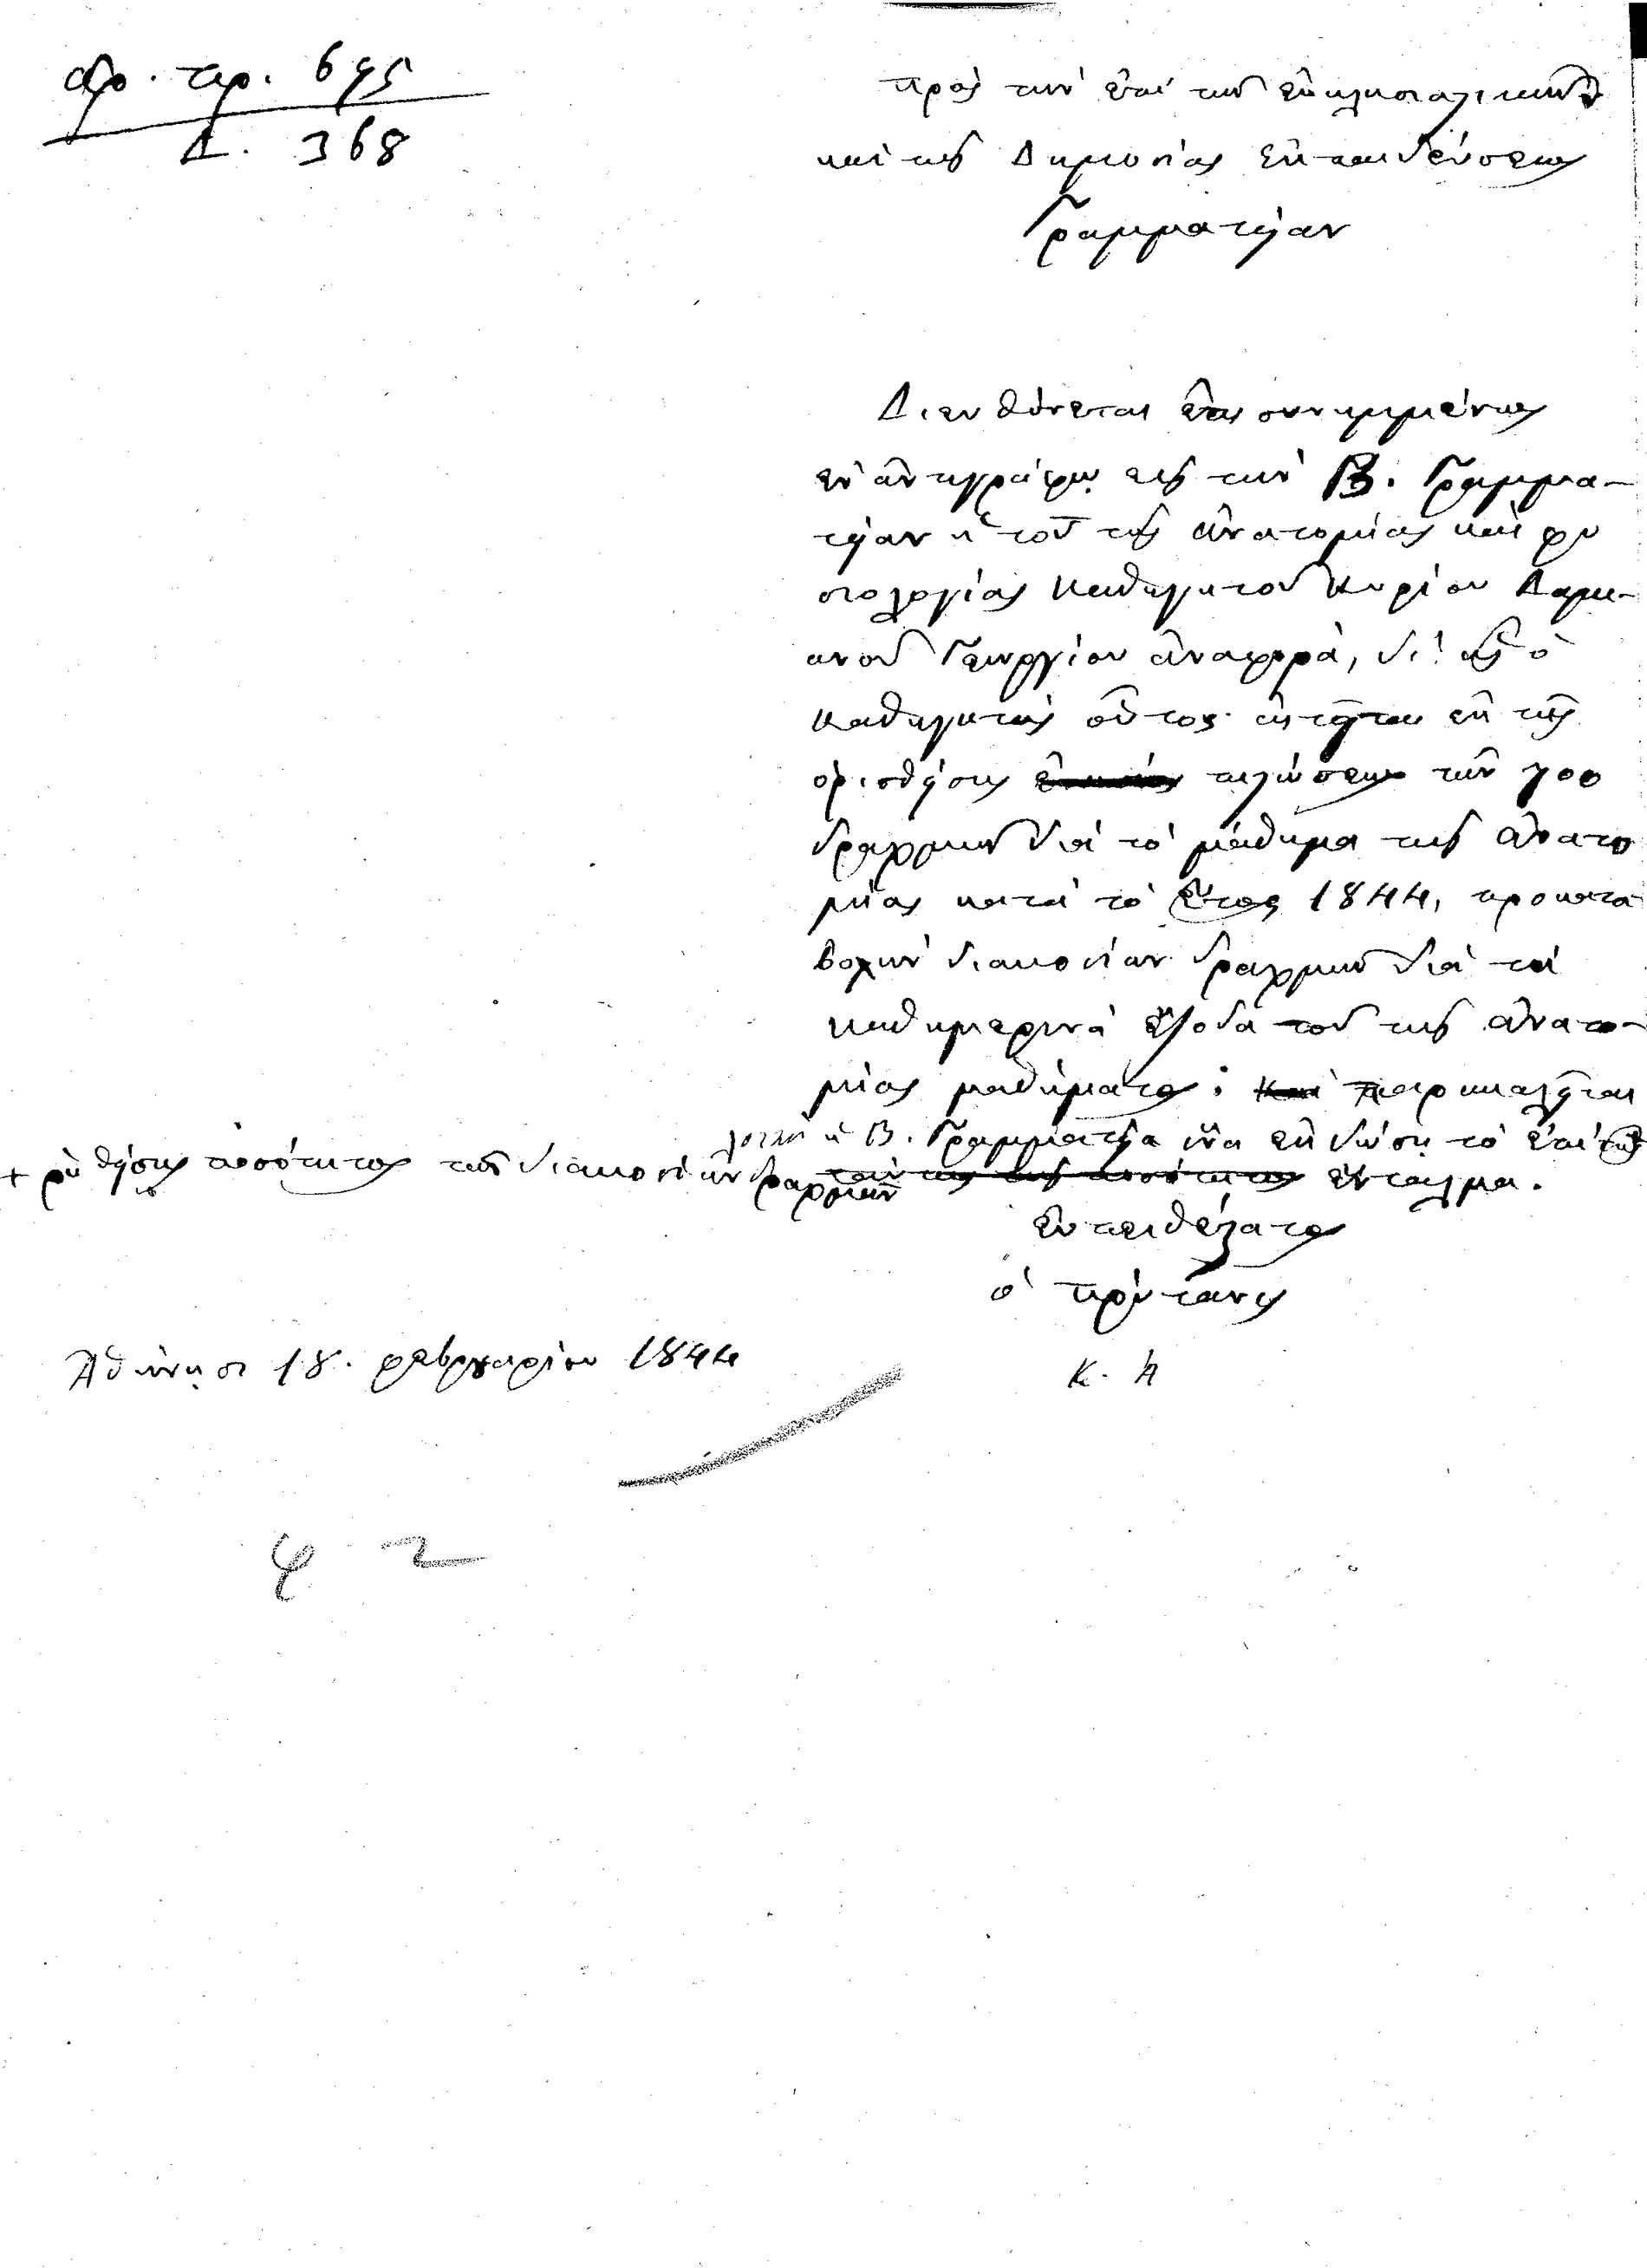 ἀρ. πρ. 695
Δ. 368
Πρὸς τὴν ἐπὶ τῶν ἐκκλησιαστικῶν
καὶ τῆς Δημοσίας Ἐκπαιδεύσεως
Γραμματείαν
Διευθύνεται ἐπισυνημμένως
ἐν ἀντιγράφῳ εἰς τὴν Β. Γραμμα-
τείαν ἡ τοῦ τῆς ἀνατομίας καὶ φυ
σιολογίας καθηγητοῦ Κυρίου Δαμι-
ανοῦ Γεωργίου ἀναφορά, δι' ἧς ὁ
καθηγητὴς οὗτος αἰτεῖται ἐκ τῆς
ὁρισθείσης πιστώσεως τῶν 700
δραχμῶν διὰ τὸ μάθημα τῆς ἀνατο
μίας κατὰ τὸ ἔτος 1844, προκατα
βολὴν διακοσίων δραχμῶν διὰ τὰ
καθημερινὰ ἔξοδα τοῦ τῆς ἀνατο-
μίας μαθήματος· καὶ παρακαλεῖται
λοιπὸν ἡ Β. Γραμματεία ἵνα ἐκδώσῃ τὸ ἐπὶ τῆς
+ ῥηθείσης ποσότητος τῶν διακοσίων δραχμῶν
ταύτης τῆς ποσότητος ἔνταλμα.
Εὐπειθέστατος
ὁ Πρύτανις
Κ. Α
Ἀθήνησι 18. φεβρουαρίου 1844
φ 2